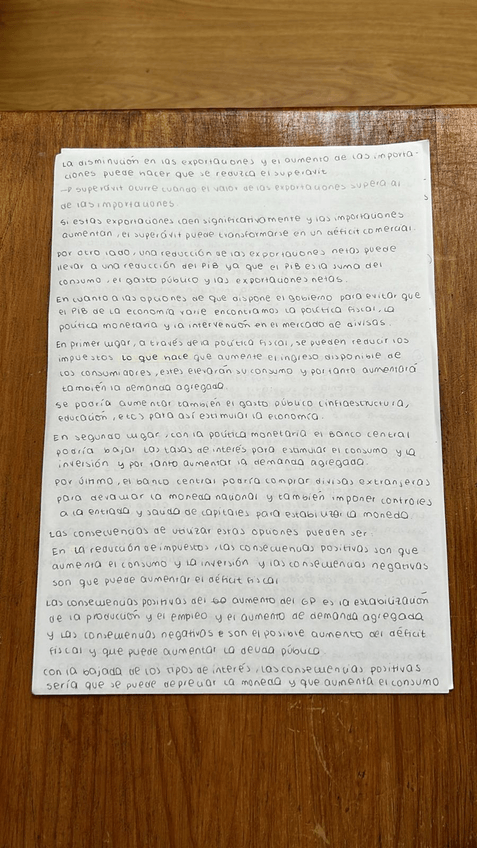 La disminución en las exportaciones y el aumento de las importa-
ciones puede hacer que se reduzca el superávit.
→ superávit ocurre cuando el valor de las exportaciones supera al
de las importaciones.
Si estas exportaciones caen significativamente y las importaciones
aumentan, el superávit puede transformarse en un déficit comercial.
Por otro lado, una reducción de las exportaciones netas puede
llevar a una reducción del PIB ya que el PIB es la suma del
consumo, el gasto público y las exportaciones netas.
En cuanto a las opciones de que dispone el gobierno para evitar que
el PIB de la economía varíe encontramos la política fiscal, la
política monetaria y la intervención en el mercado de divisas.
En primer lugar, a través de la política fiscal, se pueden reducir los
impuestos lo que hace que aumente el ingreso disponible de
los consumidores, estes elevarán su consumo y por tanto aumentará
también la demanda agregada.
Se podría aumentar también el gasto público (infraestructura,
educación, etc) para así estimular la economía.
En segundo lugar, con la política monetaria el Banco central
podría bajar las tasas de interés para estimular el consumo y la
inversión y por tanto aumentar la demanda agregada.
Por último, el banco central podría comprar divisas extranjeras
para devaluar la moneda nacional y también imponer controles
a la entrada y salida de capitales para estabilizar la moneda.
Las consecuencias de utilizar estas opciones pueden ser:
En la reducción de impuestos, las consecuencias positivas son que
aumenta el consumo y la inversión y las consecuencias negativas
son que puede aumentar el déficit fiscal
Las consecuencias positivas del aumento del GP es la estabilización
de la producción y el empleo y el aumento de demanda agregada
y las consecuencias negativas son el posible aumento del déficit
fiscal y que puede aumentar la deuda pública.
Con la bajada de los tipos de interés, las consecuencias positivas
sería que se puede depreciar la moneda y que aumenta el consumo